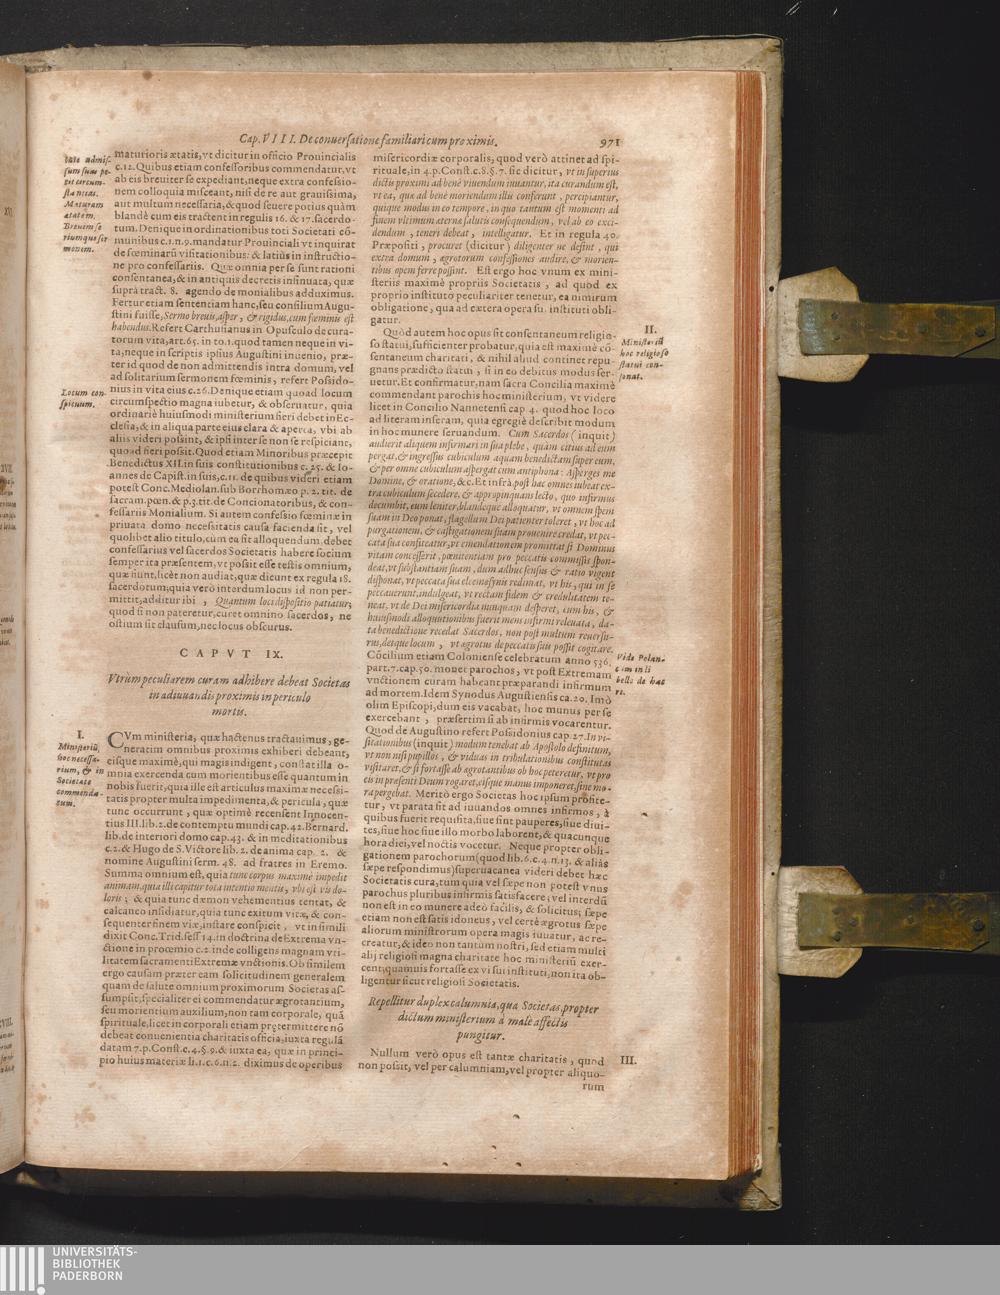 Cap. VIII. De conuersatione familiari cum proximis.
971
maturioris ætatis, vt dicitur in officio Prouincialis
c. 12. Quibus etiam confessoribus commendatur, vt
ab eis breuiter se expediant, neque extra confessio-
nem colloquia misceant, nisi de re aut grauissima,
aut multum necessaria, & quod seuere potius quàm
blandè cum eis tractent in regulis 16. & 17. sacerdo-
tum. Denique in ordinationibus toti Societati cō-
munibus c. 1. n. 9. mandatur Prouinciali vt inquirat
de fœminarū visitationibus: & latiùs in instructio-
ne pro confessariis. Quæ omnia per se sunt rationi
consentanea, & in antiquis decretis insinuata, quæ
suprà tract. 8. agendo de monialibus adduximus.
Fertur etiam sententiam hanc, seu consilium Augu-
stini fuisse, Sermo breuis, asper, & rigidus, cum fœminis est
habendus. Refert Carthusianus in Opusculo de cura-
torum vita, art. 65. in to. 1. quod tamen neque in vi-
ta, neque in scriptis ipsius Augustini inuenio, præ-
ter id quod de non admittendis intra domum, vel
ad solitarium sermonem fœminis, refert Possido-
nius in vita eius c. 26. Denique etiam quoad locum
circumspectio magna iubetur, & obseruatur, quia
ordinariè huiusmodi ministerium fieri debet in Ec-
clesia, & in aliqua parte eius clara & aperta, vbi ab
aliis videri possint, & ipsi inter se non se respiciant,
quoad fieri possit. Quod etiam Minoribus præcepit
Benedictus XII. in suis constitutionibus c. 25. & Io-
annes de Capist. in suis, c. 11. de quibus videri etiam
potest Conc. Mediolan. sub Borrhomæo p. 2. tit. de
sacram. pœn. & p. 3. tit. de Concionatoribus, & con-
fessariis Monialium. Si autem confessio fœminæ in
priuata domo necessitatis causa facienda sit, vel
quolibet alio titulo, cum ea sit alloquendum, debet
confessarius vel sacerdos Societatis habere socium
semper ita præsentem, vt possit esse testis omnium,
quæ fiunt, licèt non audiat, quæ dicunt ex regula 18.
sacerdotum; quia verò interdum locus id non per-
mittit, additur ibi, Quantum loci dispositio patiatur;
quod si non pateretur, curet omnino sacerdos, ne
ostium sit clausum, nec locus obscurus.
admis-
sum suas pe-
tit circum-
stantias.
Maturam
ætatem.
Locum con-
spicuum.
CAPVT IX.
Vtrùm peculiarem curam adhibere debeat Societas
in adiuuandis proximis in periculo
mortis.
I.
Ministeriū
hoc necessa-
rium, & in
Societate
commenda-
tum.
CVm ministeria, quæ hactenus tractauimus, ge-
neratim omnibus proximis exhiberi debeant,
eisque maximè, qui magis indigent, constat illa o-
mnia exercenda cum morientibus esse quantum in
nobis fuerit, quia ille est articulus maximæ necessi-
tatis propter multa impedimenta, & pericula, quæ
tunc occurrunt, quæ optimè recensent Innocen-
tius III. lib. 2. de contemptu mundi cap. 42. Bernard.
lib. de interiori domo cap. 43. & in meditationibus
c. 2. & Hugo de S. Victore lib. 2. de anima cap. 2. &
nomine Augustini serm. 48. ad fratres in Eremo.
Summa omnium est, quia tunc corpus maximè impedit
animam, quia illi capitur tota intentio mentis, vbi est vis do-
loris; & quia tunc dæmon vehementius tentat, &
calcaneo insidiatur, quia tunc exitum vitæ, & con-
sequenter finem viæ, instare conspicit, vt in simili
dixit Conc. Trid. sess. 14. in doctrina de Extrema vn-
ctione in proœmio c. 2. inde colligens magnam vti-
litatem sacramenti Extremæ vnctionis. Ob similem
ergo causam præter eam solicitudinem generalem
quam de salute omnium proximorum Societas as-
sumpsit, specialiter ei commendatur ægrotantium,
seu morientium auxilium, non tam corporale, quā
spirituale, licet in corporali etiam prętermittere nō
debeat conuenientia charitatis officia, iuxta regulā
datam 7. p. Const. c. 4. §. 9. & iuxta ea, quæ in princi-
pio huius materiæ li. 1. c. 6. n. 2. diximus de operibus
misericordiæ corporalis, quod verò attinet ad spi-
rituale, in 4. p. Const. c. 8. §. 7. sic dicitur, vt in superius
dictis proximi ad bene viuendum iuuantur, ita curandum est,
vt ea, quæ ad bene moriendum illis conferunt, percipiantur,
quique modus in eo tempore, in quo tantum est momenti ad
finem vltimum æternæ salutis consequendum, vel ab eo exci-
dendum, teneri debeat, intelligatur. Et in regula 40.
Præpositi, procuret (dicitur) diligenter ne desint, qui
extra domum, ægrotorum confessiones audire, & morien-
tibus opem ferre possint. Est ergo hoc vnum ex mini-
steriis maximè propriis Societatis, ad quod ex
proprio instituto peculiariter tenetur, ea nimirum
obligatione, qua ad extera opera sui instituti obli-
gatur.
Quòd autem hoc opus sit consentaneum religio-
so statui, sufficienter probatur, quia est maximè cō-
sentaneum charitati, & nihil aliud continet repu-
gnans prædicto statui, si in eo debitus modus ser-
uetur. Et confirmatur, nam sacra Concilia maximè
commendant parochis hoc ministerium, vt videre
licet in Concilio Nannetensi cap. 4. quod hoc loco
ad literam inseram, quia egregiè describit modum
in hoc munere seruandum. Cum Sacerdos (inquit)
audierit aliquem infirmari in sua plebe, quàm citius ad eum
pergat, & ingressus cubiculum aquam benedictam super eum,
& per omne cubiculum aspergat cum antiphona: Asperges me
Domine, & oratione, &c. Et infrà, post hæc omnes iubeat ex-
tra cubiculum secedere, & appropinquans lecto, quo infirmus
decumbit, eum leniter, blandéque alloquatur, vt omnem spem
suam in Deo ponat, flagellum Dei patienter toleret, vt hoc ad
purgationem, & castigationem suam prouenire credat, vt pec-
cata sua confiteatur, vt emendationem promittat si Dominus
vitam concesserit, pœnitentiam pro peccatis commissis spon-
deat, vt substantiam suam, dum adhuc sensus & ratio vigent
disponat, vt peccata sua eleemosynis redimat, vt his, qui in se
peccauerunt, indulgeat, vt rectam fidem & credulitatem te-
neat, vt de Dei misericordia nunquam desperet, cum his, &
huiusmodi alloquutionibus fuerit mens infirmi releuata, da-
ta benedictione recedat Sacerdos, non post multum reuersu-
rus, detque locum, vt ægrotus de peccatis suis possit cogitare.
Cōcilium etiam Coloniense celebratum anno 536.
part. 7. cap. 50. monet parochos, vt post Extremam
vnctionem curam habeant præparandi infirmum
ad mortem. Idem Synodus Augustiensis ca. 20. Imò
olim Episcopi, dum eis vacabat, hoc munus per se
exercebant, præsertim si ab infirmis vocarentur.
Quod de Augustino refert Possidonius cap. 27. In vi-
sitationibus (inquit) modum tenebat ab Apostolo definitum,
vt non nisi pupillos, & viduas in tribulationibus constitutas
visitaret, & si fortasse ab ægrotantibus ob hoc peteretur, vt pro
eis in præsenti Deum rogaret, eisque manus imponeret, sine mo-
ra pergebat. Meritò ergo Societas hoc ipsum profite-
tur, vt parata sit ad iuuandos omnes infirmos, à
quibus fuerit requisita, siue sint pauperes, siue diui-
tes, siue hoc siue illo morbo laborent, & quacunque
hora diei, vel noctis vocetur. Neque propter obli-
gationem parochorum (quod lib. 6. c. 4. n. 13. & aliàs
sæpe respondimus) superuacanea videri debet hæc
Societatis cura, tum quia vel sæpe non potest vnus
parochus pluribus infirmis satisfacere; vel interdū
non est in eo munere adeò facilis, & solicitus; sæpe
etiam non est satis idoneus, vel certè ægrotus sæpe
aliorum ministrorum opera magis iuuatur, ac re-
creatur, & ideo non tantum nostri, sed etiam multi
alij religiosi magna charitate hoc ministeriū exer-
cent; quamuis fortasse ex vi sui instituti, non ita ob-
ligentur sicut religiosi Societatis.
II.
Ministeriū
hoc religioso
statui con-
sonat.
Vide Polan-
cum in li
bello de hac
re.
Repellitur duplex calumnia, qua Societas, propter
dictum ministerium à malè affectis
pungitur.
Nullum verò opus est tantæ charitatis, quod
non possit, vel per calumniam, vel propter aliquo-
III.
rum
UNIVERSITÄTS-
BIBLIOTHEK
PADERBORN